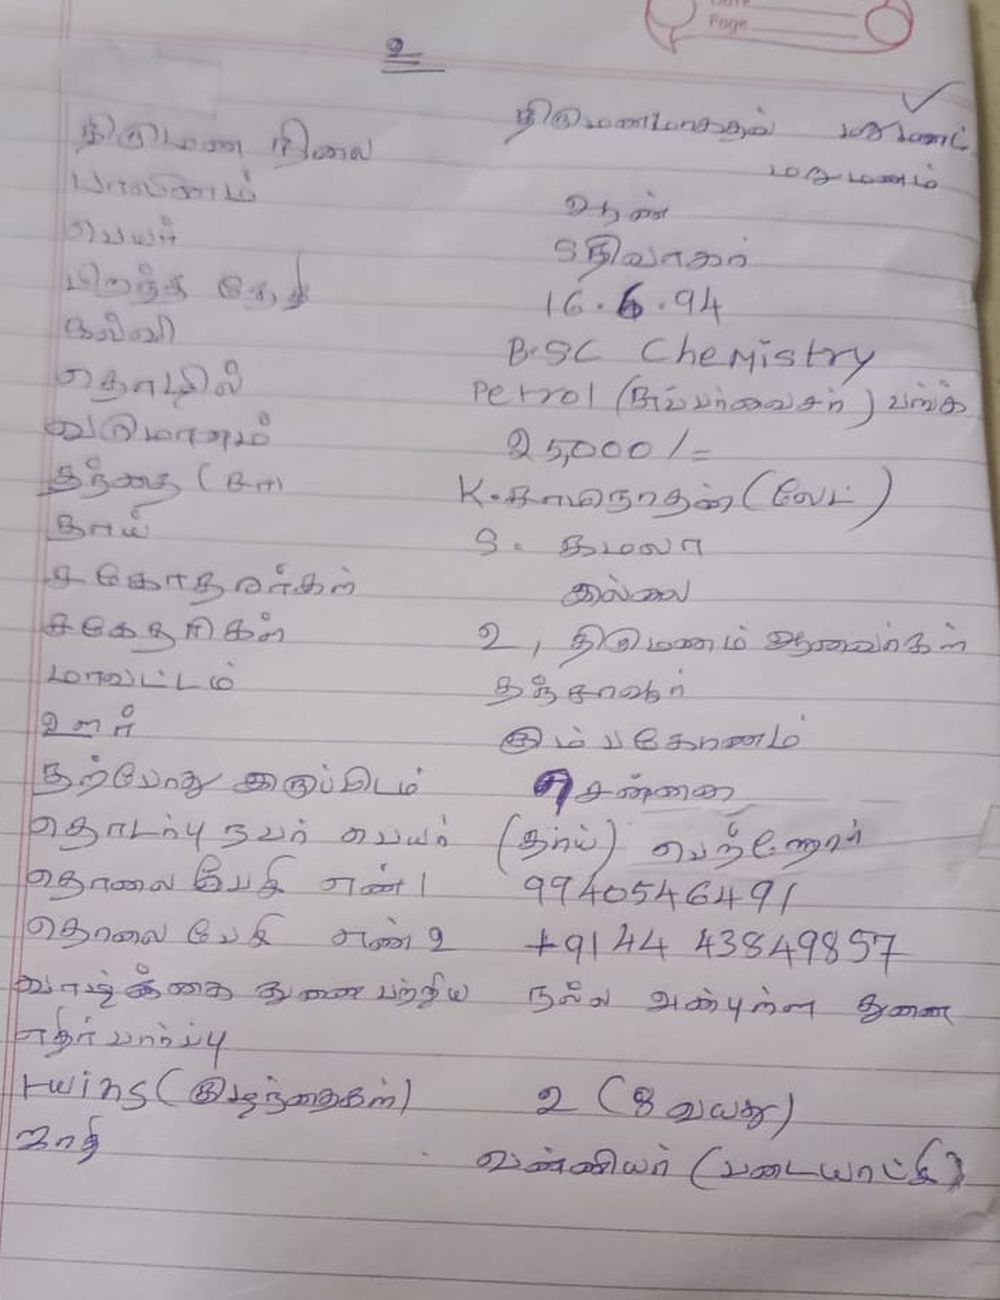 Page
உ
திருமண நிலை திருமணமாகதவர்
மறுமணம்
பாலினம் ஆண்
பெயர் S திவாகர்
பிறந்த தேதி 16.6.94
கல்வி B.SC Chemistry
தொழில் Petrol (சூப்பர்வைசர்) பங்க்
வருமானம் 25,000/=
தந்தை K. சாமிநாதன் (லேட்)
தாய் S. கமலா
சகோதரர்கள் இல்லை
சகேதரிகள் 2, திருமணம் ஆனவர்கள்
மாவட்டம் தஞ்சாவூர்
ஊர் கும்பகோணம்
தற்போது இருப்பிடம் சென்னை
தொடர்பு நபர் பெயர் (தாய்) பெற்றோர்
தொலை பேசி எண் 1 9940546491
தொலை பேசி எண் 2 +91 44 43849857
வாழ்க்கை துணை பற்றிய நல்ல அன்புள்ள துணை
எதிர்பார்ப்பு
twins (குழந்தைகள்) 2 (8 வயது)
ஜாதி வன்னியர் (படையாட்சி)